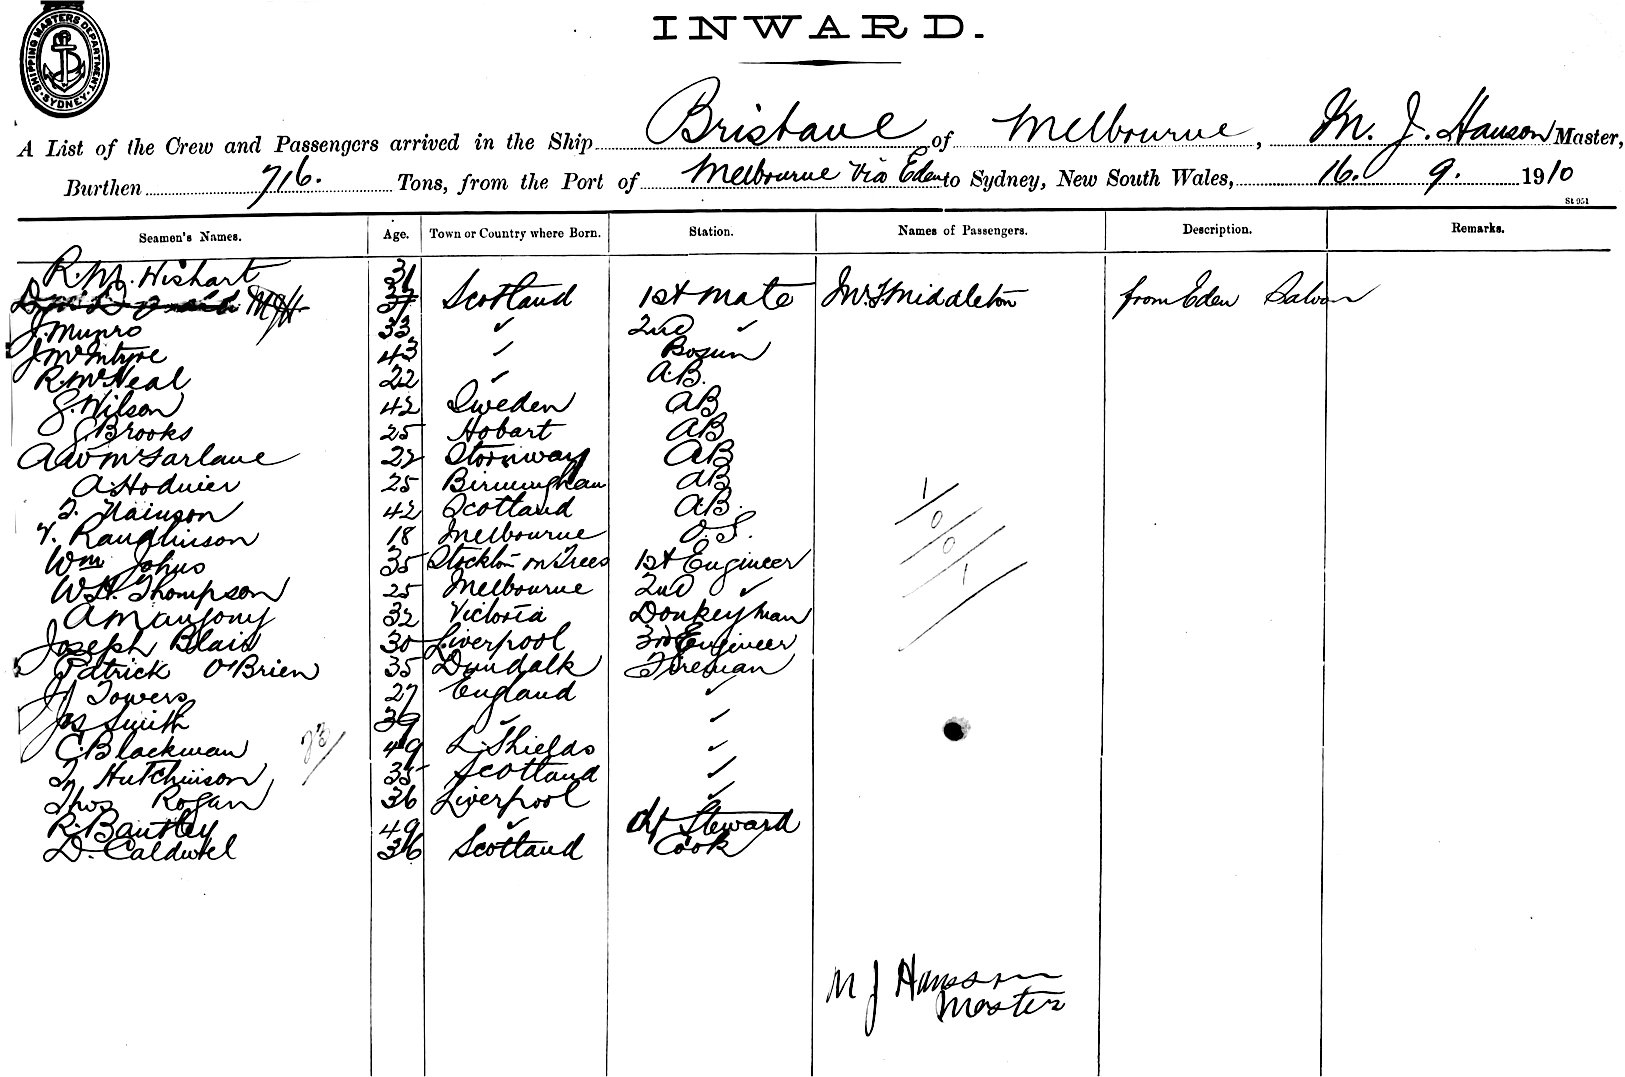 SHIPPING MASTERS DEPARTMENT
SYDNEY
INWARD.
A List of the Crew and Passengers arrived in the Ship Brisbane of Melbourne, M. J. Hanson Master,
Burthen 716. Tons, from the Port of Melbourne Via Eden to Sydney, New South Wales, 16. 9. 1910
St 951
Seamen's Names. Age. Town or Country where Born. Station. Names of Passengers. Description. Remarks.
R. M. Wishart 31
37 Scotland 1st Mate Middleton from Eden Saloon
J. Munro 33 ✓ 2nd ✓
J McIntyre 43 ✓ Bosun
R. McNeal 22 ✓ A.B.
Wilson 42 Sweden AB
Brooks 25 Hobart AB
McFarlane 22 Stornway AB
A. Hodnier 25 Birmingham AB
42 Scotland A.B.
Rawlinson 18 Melbourne O.S.
Wm Johns 35 Stockton on Trees 1st Engineer
W.H. Thompson 25 Melbourne 2nd ✓
A Mangony 32 Victoria Donkeyman
Joseph Blair 30 Liverpool 3rd Engineer
Patrick O'Brien 35 Dundalk Fireman
Towers 27 England ✓
Jas Smith 39 ✓ ✓
C. Blackman 49 Shields ✓
Hutchinson 35 Scotland ✓
Thos Rogan 36 Liverpool ✓
R. Bantley 49 ✓ Ch Steward
D. Caldwel 36 Scotland Cook
23/
1/0/0/1/
M J Hansson
Master